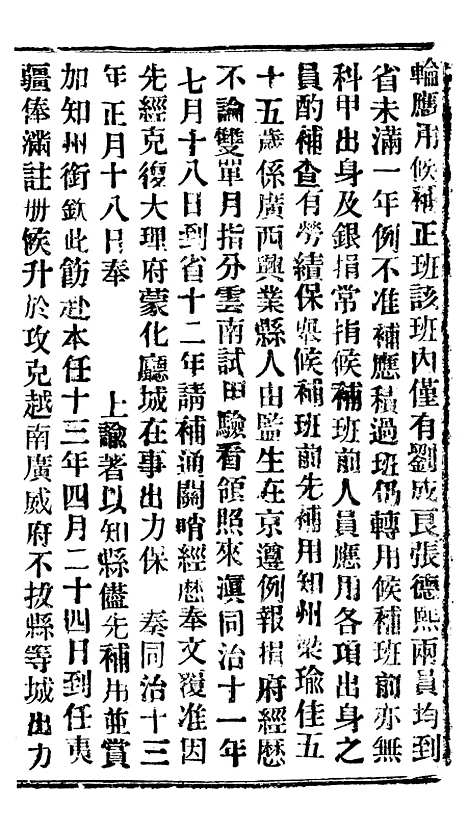 輪應用候補正班該班內僅有劉成良張德熙兩員均到
省未滿一年例不准補應積過班仍轉用候補班前亦無
科甲出身及銀捐常捐候補班前人員應用各項出身之
員酌補查有勞績保舉候補班前先補用知州梁瑜佳五
十五歲係廣西興業縣人由監生在京遵例報捐府經歷
不論雙單月指分雲南試用驗看領照來滇同治十一年
七月十八日到省十二年請補通關哨經歷奉文覆准因
先經克復大理府蒙化廳城在事出力保 奏同治十三
年正月十八日奉 上諭著以知縣儘先補用並賞
加知州銜欽此飭赴本任十三年四月二十四日到任夷
疆俸滿註冊候升於攻克越南廣威府不拔縣等城出力